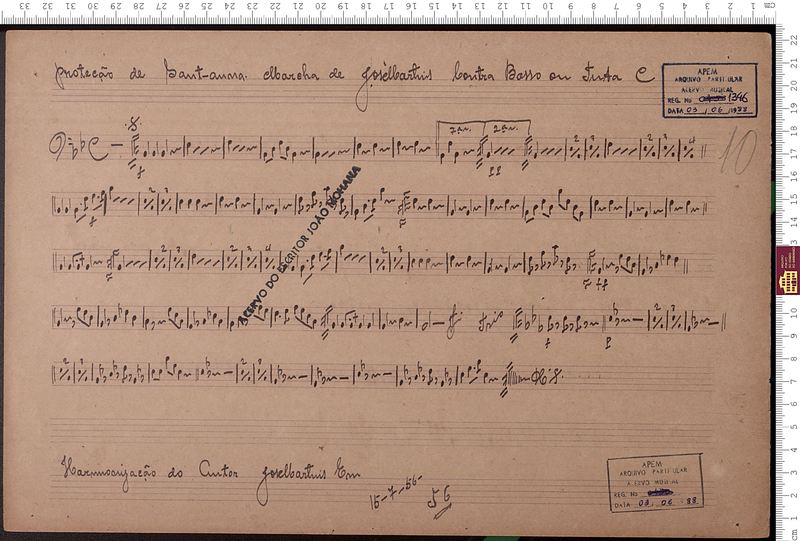 Proteção de Sant-anna. Marcha de José Martins Contra Basso ou Tuba C
APEM
ARQUIVO PARTICULAR
ACERVO MUSICAL
REG. No 1346
DATA 03 / 06 / 1988
10
1ª 2ª
ACERVO DO ESCRITOR JOÃO MOHANA
ff
f
ff
Fim
Trio
f
p
D.C.
Harmonização do Autor José Martins Em
15-7-56-
56
APEM
ARQUIVO PARTICULAR
ACERVO MUSICAL
REG. No
DATA 03. 06. 88